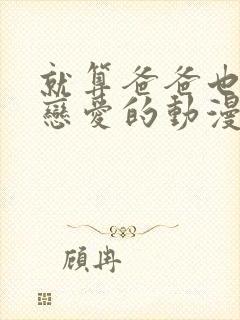 就算爸爸也
戀愛的動漫
顧冉